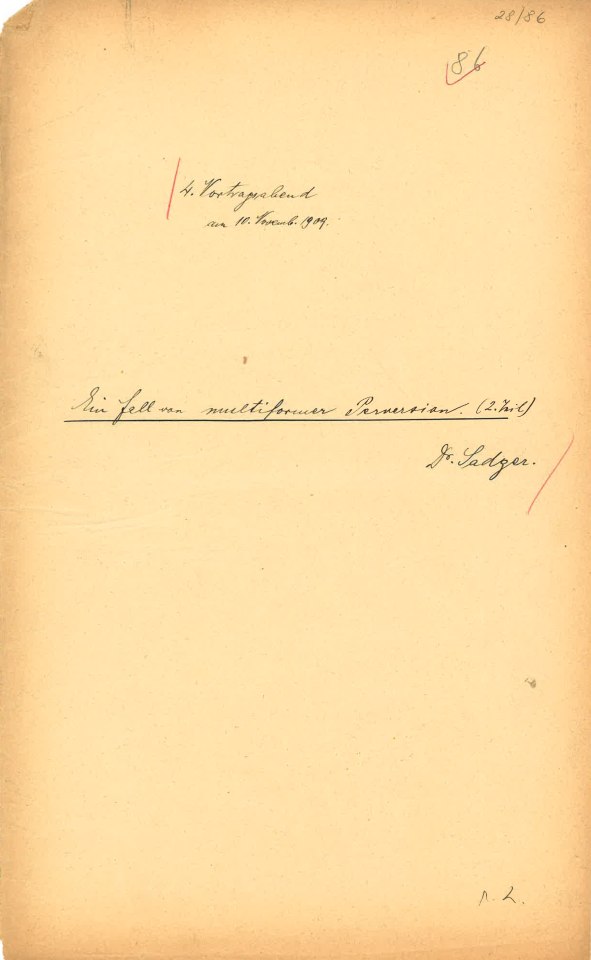 28/86
86
4. Vortragsabend
am 10. Novemb. 1909.
Ein Fall von multiformer Perversion. (2. Teil)
Dr. Sadger.